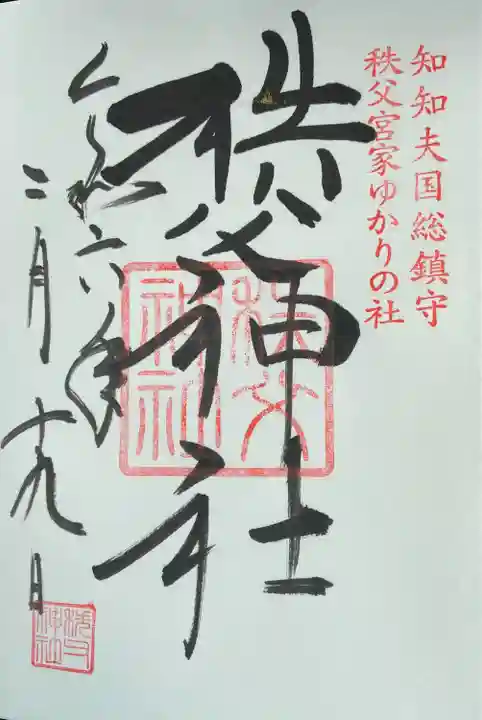 知知夫国総鎮守
秩父宮家ゆかりの社
秩父神社
令和六年
二月十九日
秩父神社
秩父神社